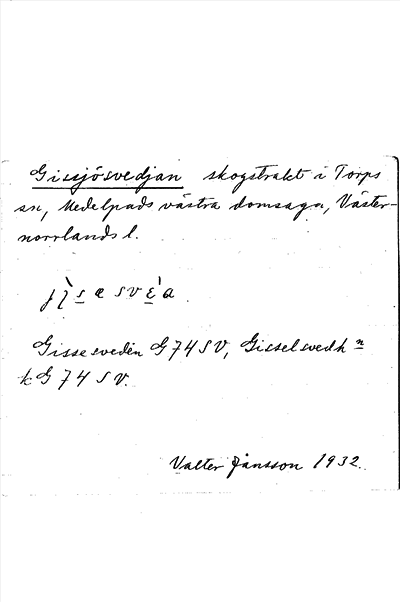 Gissjösvedjan skogstrakt i Torps
sn, Medelpads västra domsaga, Väster-
norrlands l.
Gissesveden G 74 SV, Gisselsvedh n
k G 74 SV.
Valter Jansson 1932.